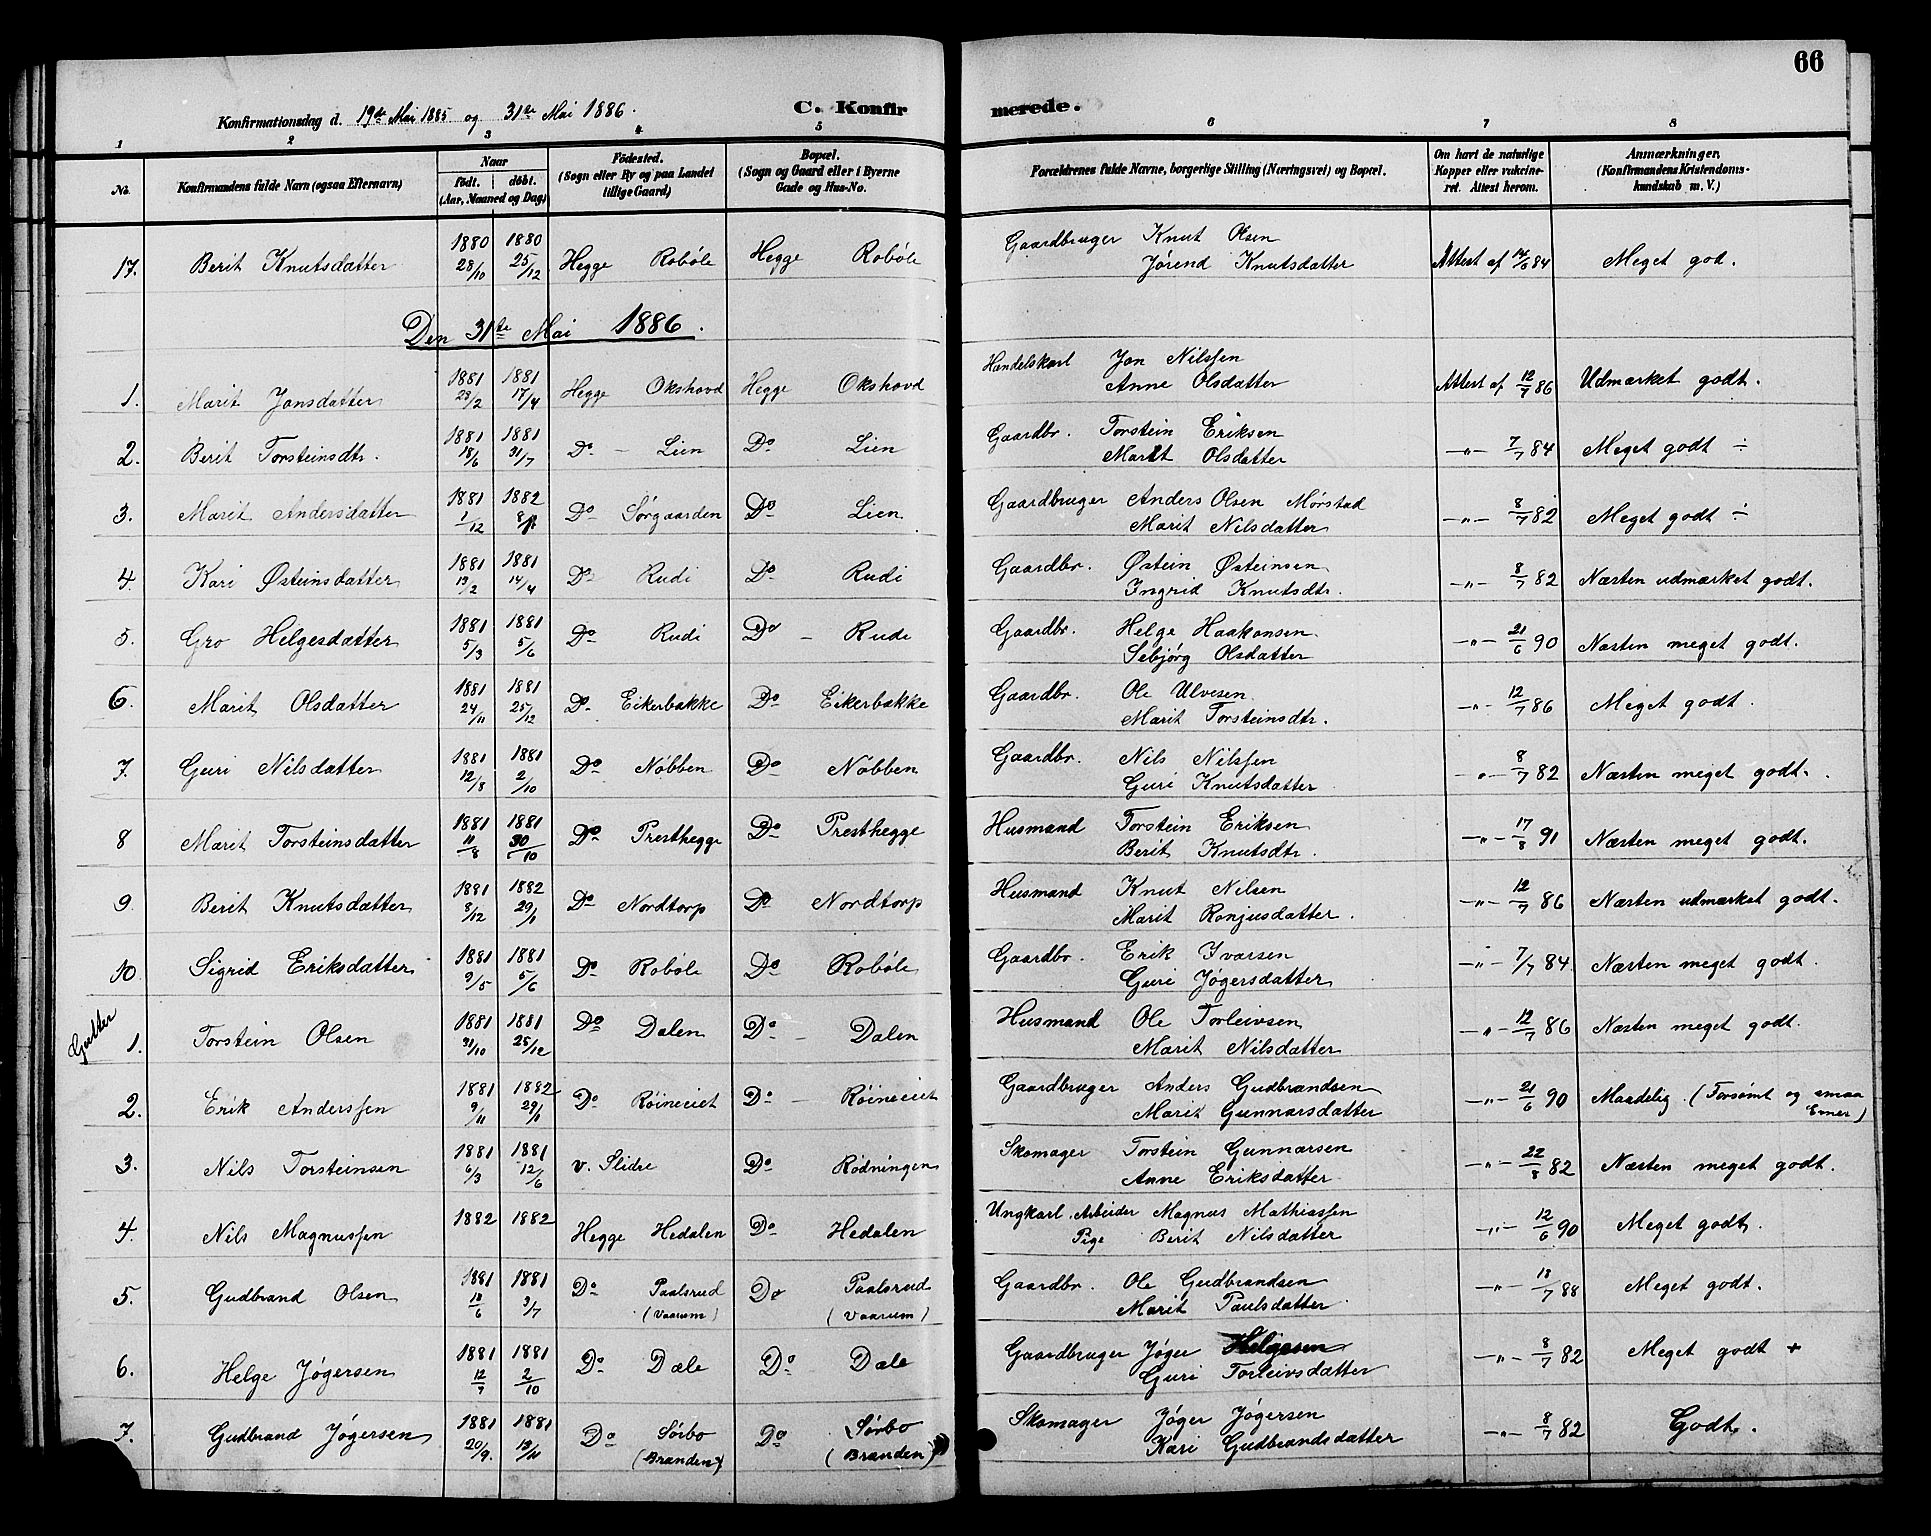 66
Konfirmationsdag d. 19de Mai 1885 og 31te Mai 1886. C. Konfirmerede.
1 2 3 4 5 6 7 8
No. Konfirmandens fulde Navn (ogsaa Efternavn) Naar født. døbt. (Aar, Maaned og Dag) Fødested. (Sogn eller By og paa Landet tillige Gaard) Bopæl. (Sogn og Gaard eller i Byerne Gade og Hus-No. Forældrenes fulde Navne, borgerlige Stilling (Næringsvei) og Bopæl. Om havt de naturlige Kopper eller vaccineret. Attest herom. Anmærkninger. (Konfirmandens Kristendomskundskab m. V.)
17. Berit Knutsdatter 1880 28/10 1880 25/12 Hegge Robøle Hegge Robøle Gaardbruger Knut Olsen Jørend Knutsdatter Attest af 14/6 84 Meget god.
Den 31te Mai 1886.
1. Marit Jonsdatter 1881 23/2 1881 17/4 Hegge Okshovd Hegge Okshovd Handelskarl Jon Nilssen Anne Olsdatter Attest af 12/7 86 Udmærket godt.
2. Berit Torsteinsdtr. 1881 18/6 1881 31/7 Do - Lien Do Lien Gaardbr. Torstein Eriksen Marit Olsdatter -"- 7/7 84 Meget godt ÷
3. Marit Andersdatter 1881 1/12 1882 8/1 Do Sørgaarden Do Lien Gaardbruger Anders Olsen Mørstad Marit Nilsdatter -"- 8/7 82 Meget godt ÷
4. Kari Østeinsdatter 1881 13/2 1881 14/4 Do Rudi Do Rudi Gaardbr. Østein Østeinsen Ingrid Knutsdtr. -"- 8/7 82 Næsten udmærket godt.
5. Gro Helgesdatter 1881 5/3 1881 5/6 Do Rudi Do - Rudi Gaardbr. Helge Haakonsen Sebjørg Olsdatter -"- 21/6 90 Næsten meget godt.
6. Marit Olsdatter 1881 24/11 1881 25/12 Do Eikerbakke Do Eikerbakke Gaardbr. Ole Ulvesen Marit Torsteinsdtr. -"- 12/7 86 Meget godt.
7. Guri Nilsdatter 1881 12/8 1881 2/10 Do Nøbben Do Nøbben Gaardbr. Nils Nilssen Guri Knutsdatter -"- 8/7 82 Næsten meget godt.
8 Marit Torsteinsdatter 1881 11/8 1881 30/10 Do Presthegge Do Presthegge Husmand Torstein Eriksen Berit Knutsdtr. -"- 17/8 91 Næsten meget godt.
9. Berit Knutsdatter 1881 8/12 1882 29/1 Do Nordtorp Do Nordtorp Husmand Knut Nilsen Marit Ronjusdatter. -"- 12/7 86 Næsten udmærket godt.
10. Sigrid Eriksdatter 1881 9/5 1881 5/6 Do Robøle Do Robøle Gaardbr. Erik Ivarsen Guri Jøgersdatter -"- 7/7 84. Næsten meget godt.
Gutter
1. Torstein Olsen 1881 31/10 1881 25/12 Do Dalen Do - Dalen Husmand Ole Torleivsen Marit Nilsdatter -"- 12/7 86 Næsten meget godt.
2. Erik Anderssen 1881 9/11 1882 29/1 Do Røineciet Do - Røineciet Gaardbruger Anders Gudbrandsen Marit Gunnarsdatter -"- 21/6 90 Maadelig. (Forsømt og smaa Evner)
3. Nils Torsteinsen 1881 6/3 1881 12/6 v. Slidre Do Rødningen Skomager Torstein Gunnarsen Anne Eriksdatter -"- 22/8 82 Næsten meget godt.
4. Nils Magnussen 1882 1882 Hegge Hedalen Do Hedalen Ungkarl Arbeider Magnus Mathiassen Pige Berit Nilsdatter -"- 12/6 90 Meget godt.
5. Gudbrand Olsen 1881 18/6 1881 3/7 Do Paalsrud (Vaarum) Do Paalsrud (Vaarum) Gaardbr. Ole Gudbrandsen Marit Paulsdatter -"- 18/7 88 Meget godt.
6. Helge Jøgersen 1881 12/7 1881 2/10 Do Dale Do Dale Gaardbruger Jøger Helgesen Guri Torleivsdatter -"- 8/7 82 Meget godt +
7. Gudbrand Jøgersen 1881 20/9. 1881 13/11 Do Sørbo (Branden) Do Sørbo (Branden) Skomager Jøger Jøgersen Kari Gudbrandsdatter -"- 8/7 82 Godt.